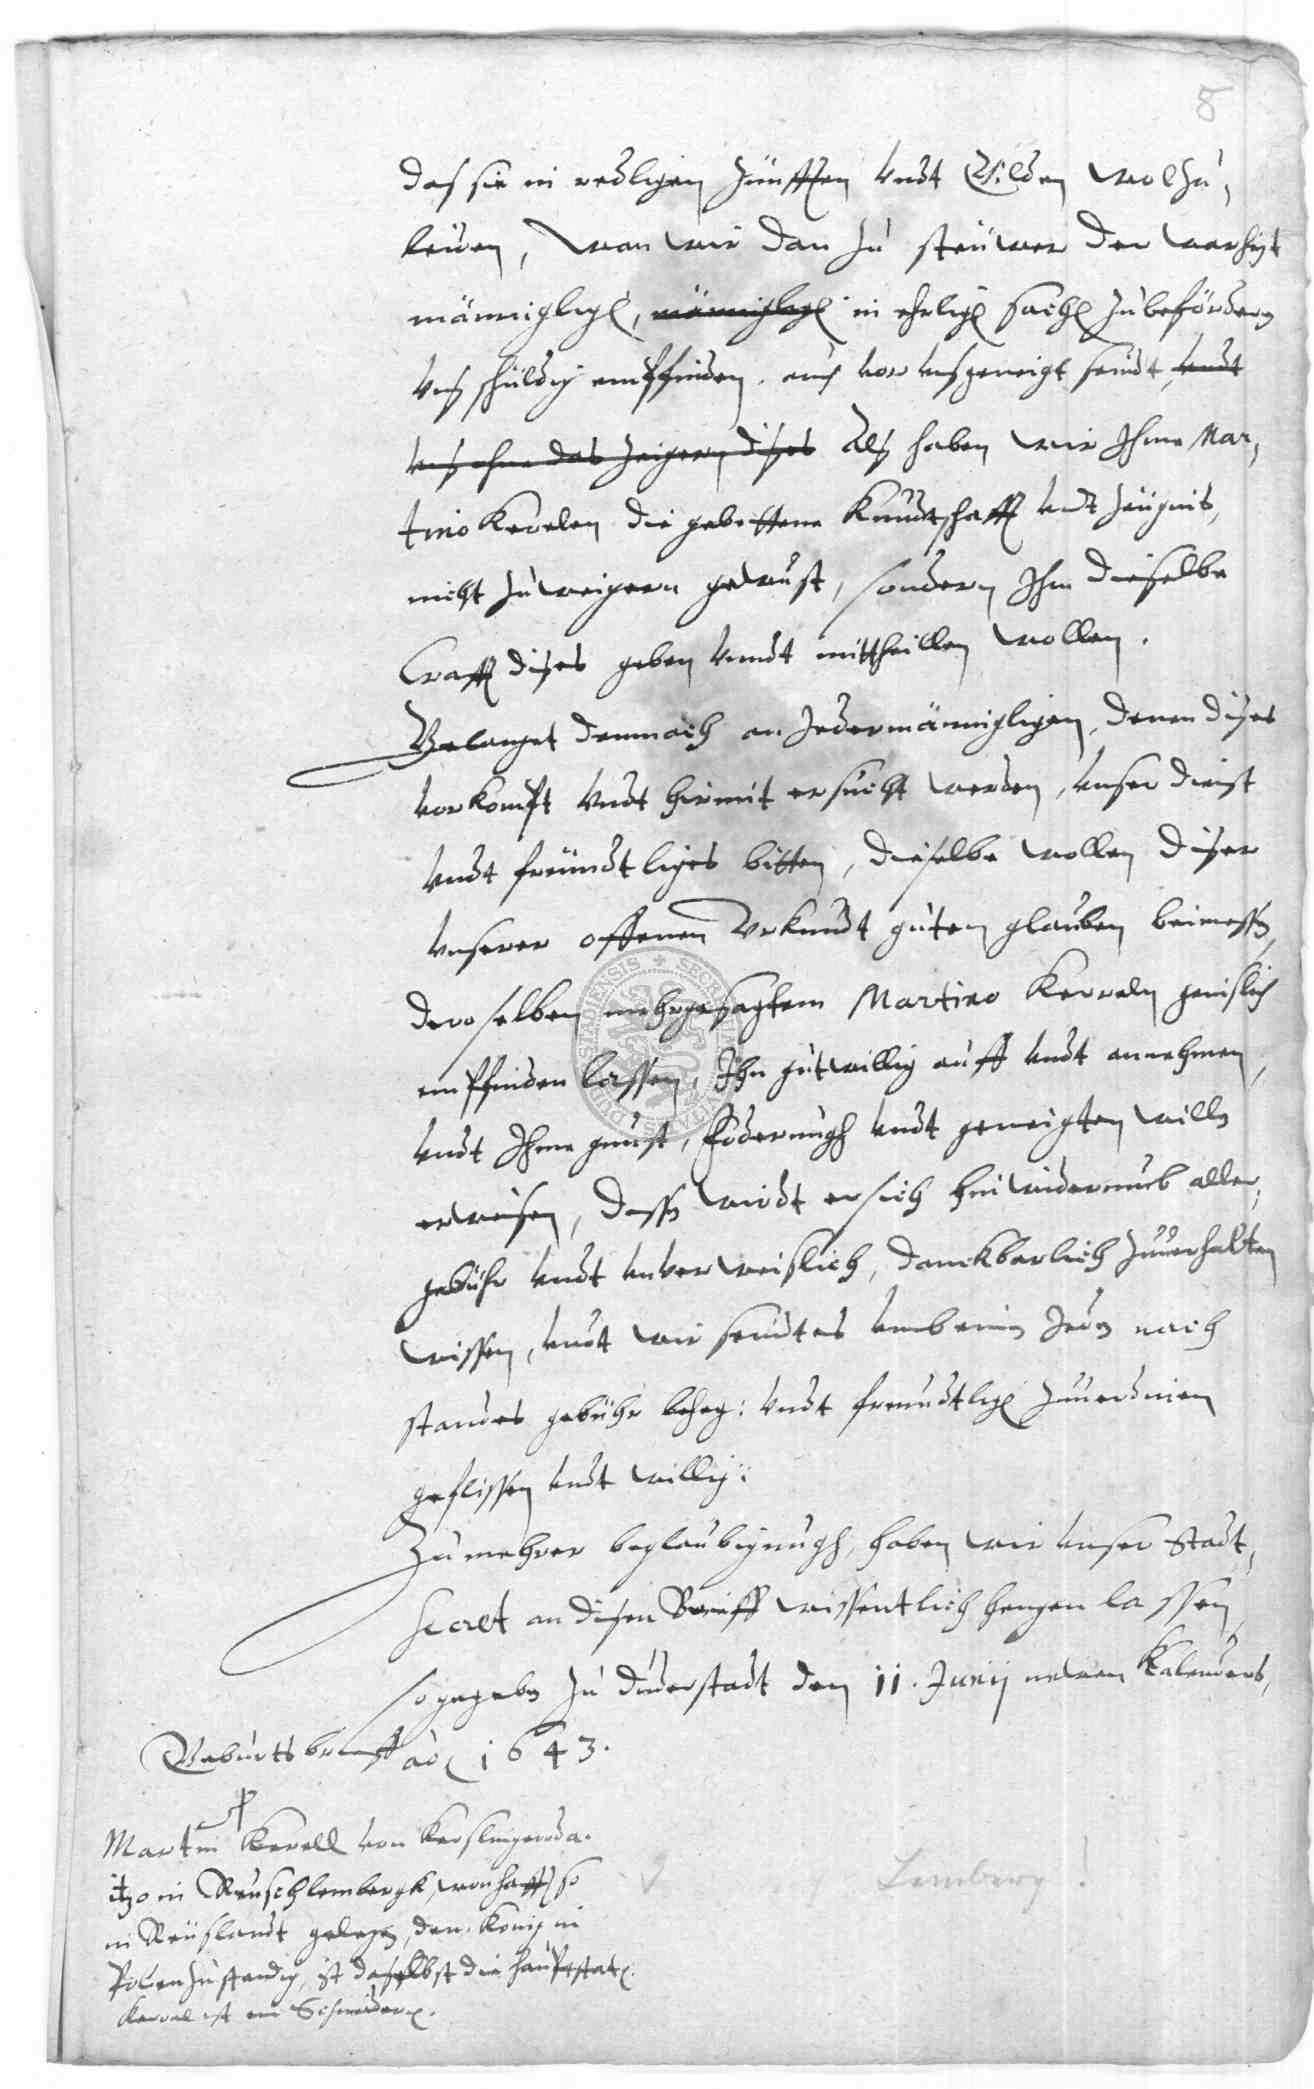 8
das sie in redligen Zünfften undt Gilden wol zu,
leiden, wan wir dan zu steuwer der warheit
männiglich, männiglich in ehrlich sach zubefördern
uns schuldig empfinden. auch vor uns geneigt seindt undt
uns ohne das zeigern dises Als haben wir Ihme Mar,
tino Kerelen die gebettene Kundtschafft undt Zeugnis,
nicht zu weigern gewust, sondern Ihm dieselbe
Crafft dises geben unndt mittheillen wollen.
Gelanget demnach an Jedermänniglichen, denen dises
vorkompt undt hirmit ersucht werden, unser dienst
undt freundtliches bitten, dieselbe wollen diser
unserer offenen Urkundt guten glauben beimessen,
deroselben mehrgesagtem Martino Kerreln genislich
empfinden lassen, Ihn gutwillig auff undt annehmen,
undt Ihme gunst, Foderungh undt geneigten willen
erweisen, dessen wirdt er sich hinwiderumb aller,
gebühr undt unverweislich, danckbarlich zuverhalten
wissen, undt wir seindt es umb einen Jeden nach
standes gebühr beheg: undt freundtlich zuverdienen
geflissen undt willig:
Zu mehrer beglaubigungh, haben wir unser Stadt,
Secret an disen Brieff wissentlich hengen lassen
so gegeben zu Duderstadt den 11. Junij newen Kalenders,
Geburtsbrieff ad 1643.
Martin Kerell von Kerslingeroda.
itzo in Reuschlembergk, wonhafft so
in Reuslandt gelegen, dem König in
Polen zustandig, ist daselbst die hauptstatt.
Kerrel ist ein Schneider.
Lemberg!